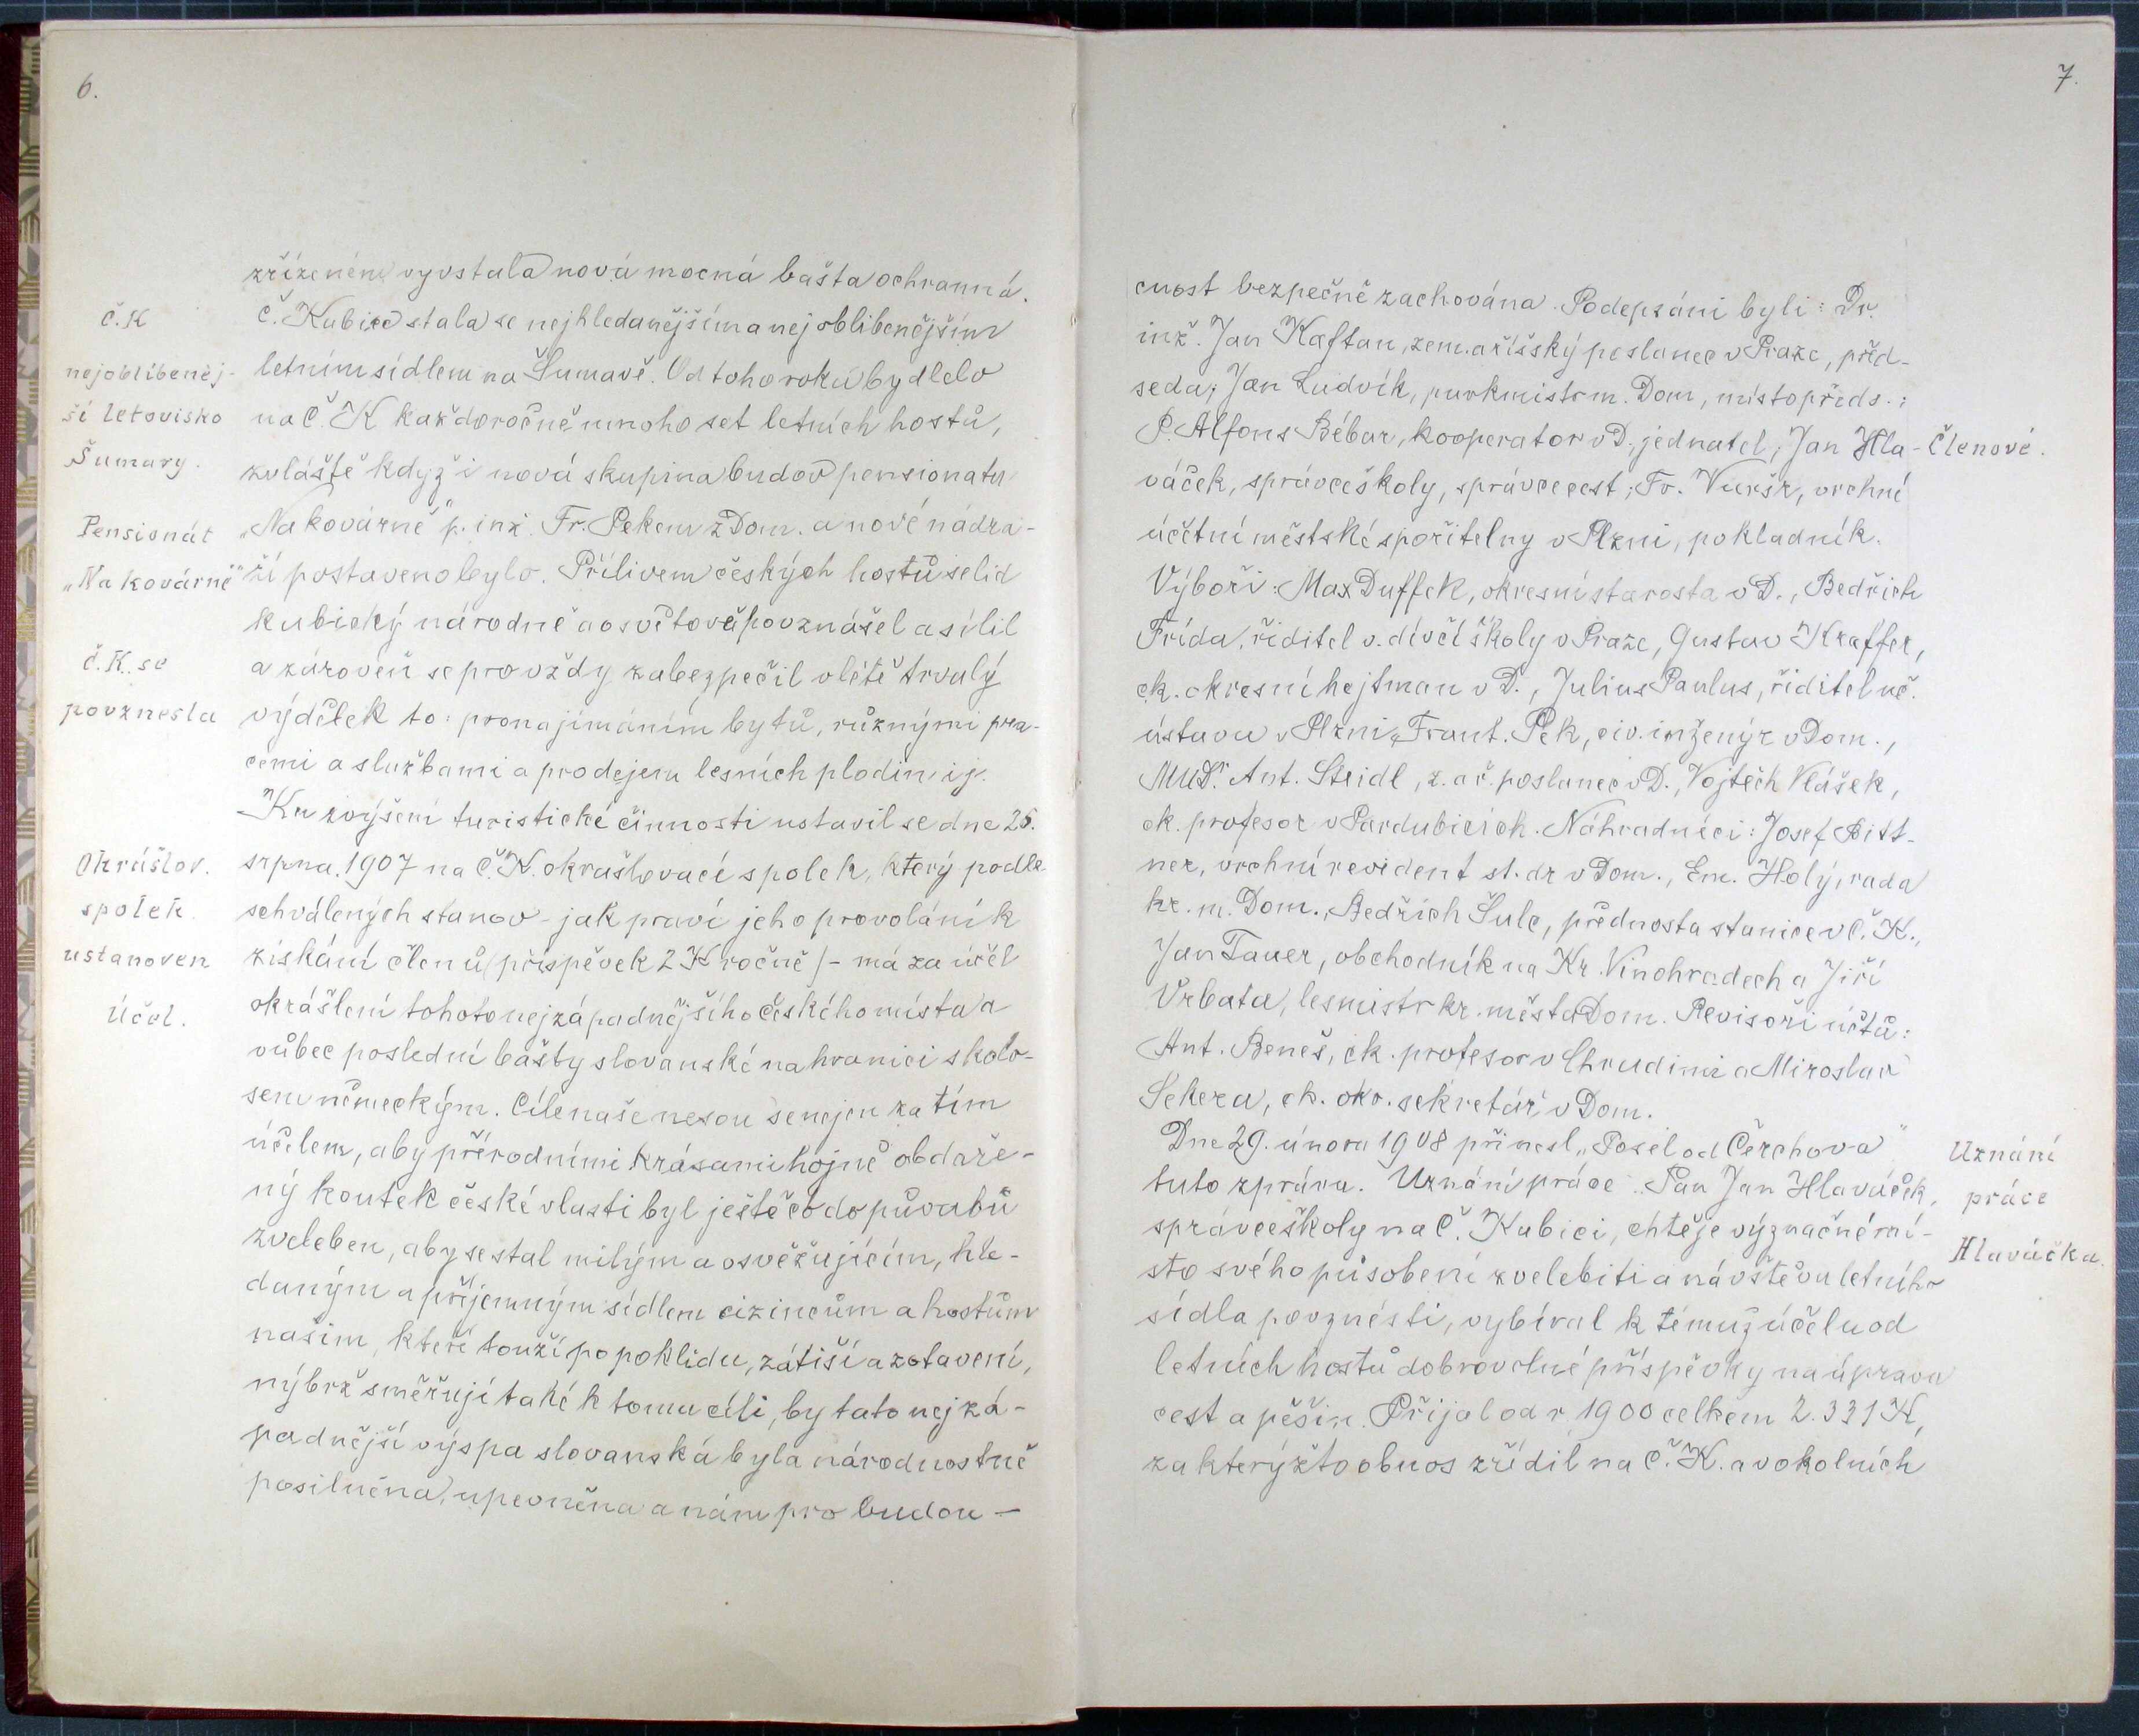 6.
zřízeném vyvstala nová mocná bašta ochranná.
Č. Kubice stala se nejhledanějším a nejoblibenějším
letním sídlem na Šumavě. Od toho roku bydlelo
na Č. K každoročně mnoho set letních hostů,
zvláště když i nová skupina budov pensionatu
„Na kovárně" p. inž. Fr. Pekem z Dom. a nové nádra-
ží postaveno bylo. Přílivem českých hostů se lid
kubický národně a osvětově povznášel a sílil
a zároveň se provždy zabezpečil v létě trvalý
výdělek to: pronajímáním bytů, různými pra-
cemi a službami a prodejem lesních plodin ij.
Ku zvýšení turistické činnosti ustavil se dne 25.
srpna 1907 na Č. K. okrašlovací spolek, který podle
schválených stanov - jak praví jeho provolání k
získání členů (příspěvek 2 K ročně) - má za účel
okrášlení tohoto nejzápadnějšího českého místa a
vůbec poslední bašty slovanské na hranici s kolo-
sem německým. Cíle naše nesou se nejen za tím
účelem, aby přírodními krásami hojně obdaře-
ný koutek české vlasti byl ještě co do půvabů
zveleben, aby se stal milým a osvěžujícím, hle-
daným a příjemným sídlem cizincům a hostům
našim, kteří touží po poklidu, zátiší a zotavení,
nýbrž směřují také k tomu cíli, by tato nejzá-
padnější výspa slovanská byla národnostně
posilněna, upevněna a nám pro budou-
Č. K
nejoblíbeněj-
ší letovisko
Šumavy.
Pensionát
„Na kovárně"
Č. K. se
povznesla
Okrášlov.
spolek
ustanoven
Účel.
7.
cnost bezpečně zachována. Podepsáni byli: Dr.
inž. Jan Kaftan, zem. a říšský poslanec v Praze, před-
seda; Jan Ludvík, purkmistr m. Dom, místopředs.;
P. Alfons Bébar, kooperator v D., jednatel; Jan Hla-
váček, správce školy, správce cest; Fr. Vuršr, vrchní
účetní městské spořitelny v Plzni, pokladník.
Výboři: Max Duffek, okresní starosta v D., Bedřich
Frída, ředitel v. dívčí školy v Praze, Gustav Kraffer,
ck. okresní hejtman v D., Julius Paulus, řiditel uč.
ústavu v Plzni, Frant. Pek, civ. inženýr v Dom.,
MUDr. Ant. Steidl, z. a ř. poslanec v D., Vojtěch Vlášek,
ck. profesor v Pardubicích. Náhradníci: Josef Bitt-
ner, vrchní revident st. dr v Dom., Em. Holý, rada
kr. m. Dom., Bedřich Šulc, přednosta stanice v Č. K.,
Jan Tauer, obchodník na Kr. Vinohradech a Jiří
Vrbata, lesmistr kr. města Dom. Revisoři účtů:
Ant. Beneš, ck. profesor v Chrudimi a Miroslav
Sekera, ck. okr. sekretář v Dom.
Dne 29. února 1908 přinesl „Posel od Čerchova"
tuto zprávu. Uznání práce „Pan Jan Hlaváček,
správce školy na Č. Kubici, chtěje význačné mí-
sto svého působení zvelebiti a návštěvu letního
sídla povznésti, vybíral k témuž účelu od
letních hostů dobrovolné příspěvky na úpravu
cest a pěšin. Přijal od r. 1900 celkem 2.331 K,
za kterýžto obnos zřídil na Č. K. a v okolních
Členové.
Uznání
práce
Hlaváčka.